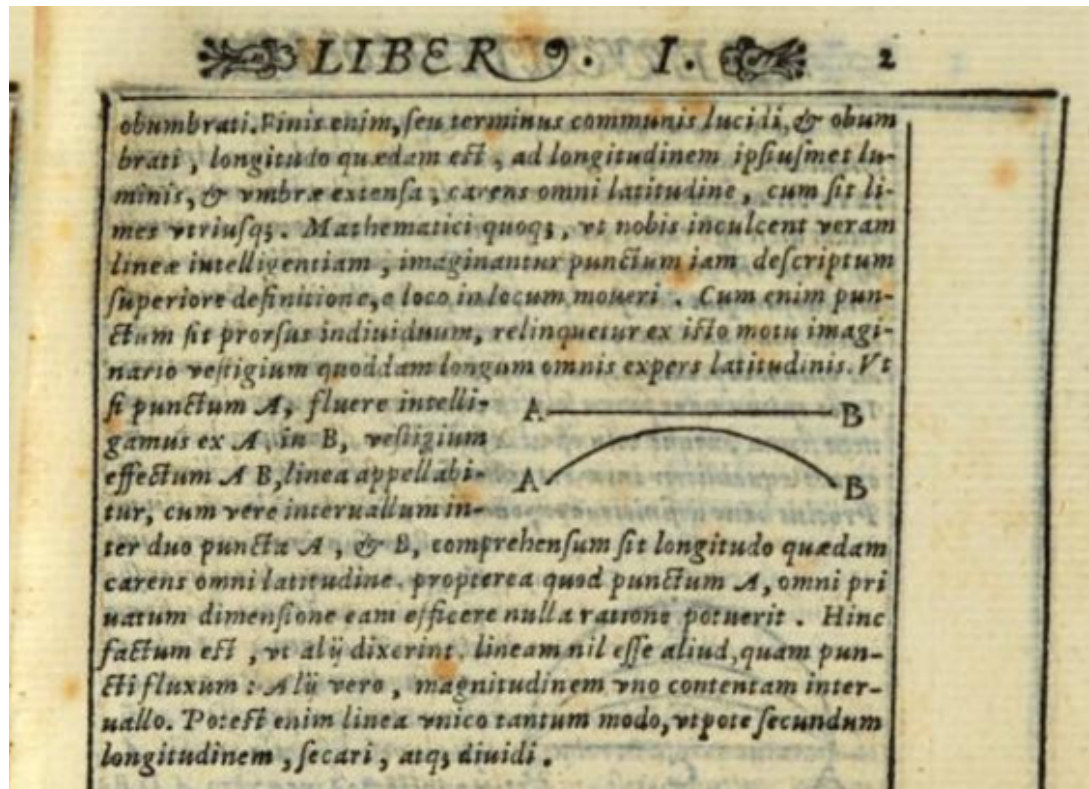 LIBER. I. 2
obumbrati. Finis enim, ſeu terminus communis lucidi, & obum
brati, longitudo quædam eſt, ad longitudinem ipſiuſmet lu-
minis, & vmbræ extenſa; carens omni latitudine, cum ſit li-
mes vtriuſq;. Mathematici quoq;, vt nobis inculcent veram
lineæ intelligentiam, imaginantur punctum iam deſcriptum
ſuperiore definitione, e loco in locum moueri. Cum enim pun-
ctum ſit prorſus indiuiduum, relinquetur ex iſto motu imagi-
nario veſtigium quoddam longum omnis expers latitudinis. Vt
ſi punctum A, fluere intelli-
gamus ex A, in B, veſtigium
effectum A B, linea appellabi-
tur, cum vere interuallum in-
A B
A B
ter duo puncta A, & B, comprehenſum ſit longitudo quædam
carens omni latitudine. propterea quod punctum A, omni pri
uatum dimenſione eam efficere nulla ratione potuerit. Hinc
factum eſt, vt alij dixerint. lineam nil eſſe aliud, quam pun-
cti fluxum: Alii vero, magnitudinem vno contentam inter-
uallo. Poteſt enim linea vnico tantum modo, vtpote ſecundum
longitudinem, ſecari, atq; diuidi.